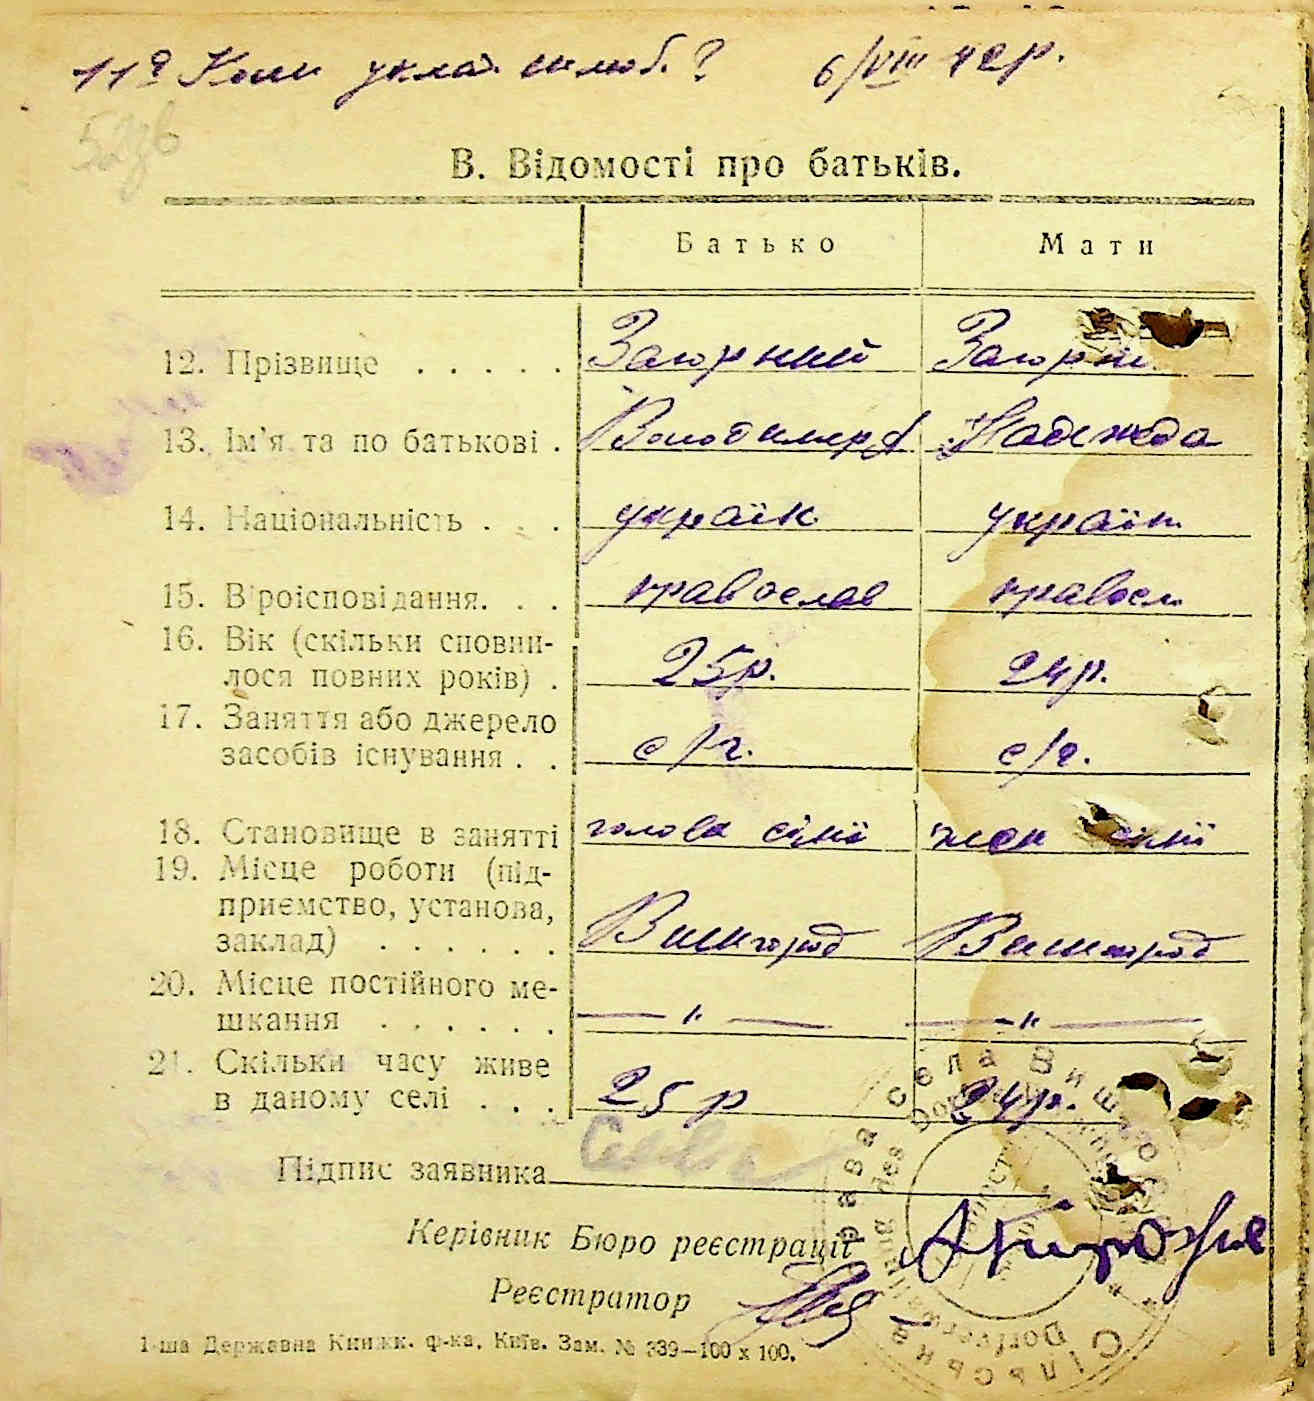 11а Коли уклад. шлюб. ? 6/VIII 42р.
В. Відомості про батьків.
Батько Мати
12. Прізвище . . . . . Загорний Загорн
13. Ім'я та по батькові . Володимир А Надежда
14. Національність . . . україн. україн.
15. Віроісповідання. . . православ правосл.
16. Вік (скільки сповни-
лося повних років) . 25р. 24р.
17. Заняття або джерело
засобів існування . . с/г. с/г.
18. Становище в занятті голова сімї жен сімї
19. Місце роботи (під-
приємство, установа,
заклад) . . . . . . Вишгород Вишгород
20. Місце постійного ме-
шкання . . . . . . — " — — " —
21. Скільки часу живе
в даному селі . . . 25 р 24р.
Підпис заявника
Керівник Бюро реєстрації
Реєстратор
1-ша Державна Книжк. ф-ка, Київ. Зам. № 339—100 х 100.
Сільська Управа Села Вишгород
Dorfverwaltung des Dorfes